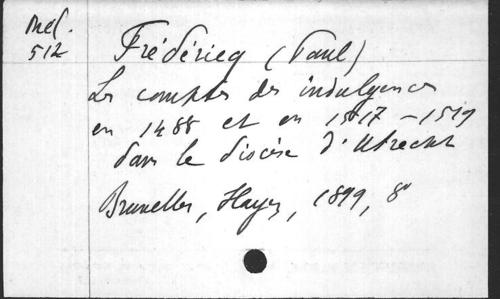 Mel.
512
Frédéricq (Paul)
Les comptes des indulgences
en 1488 et en 1517-1519
dans le diocèse d'Utrecht
Bruxelles, Hayez, 1899, 8°